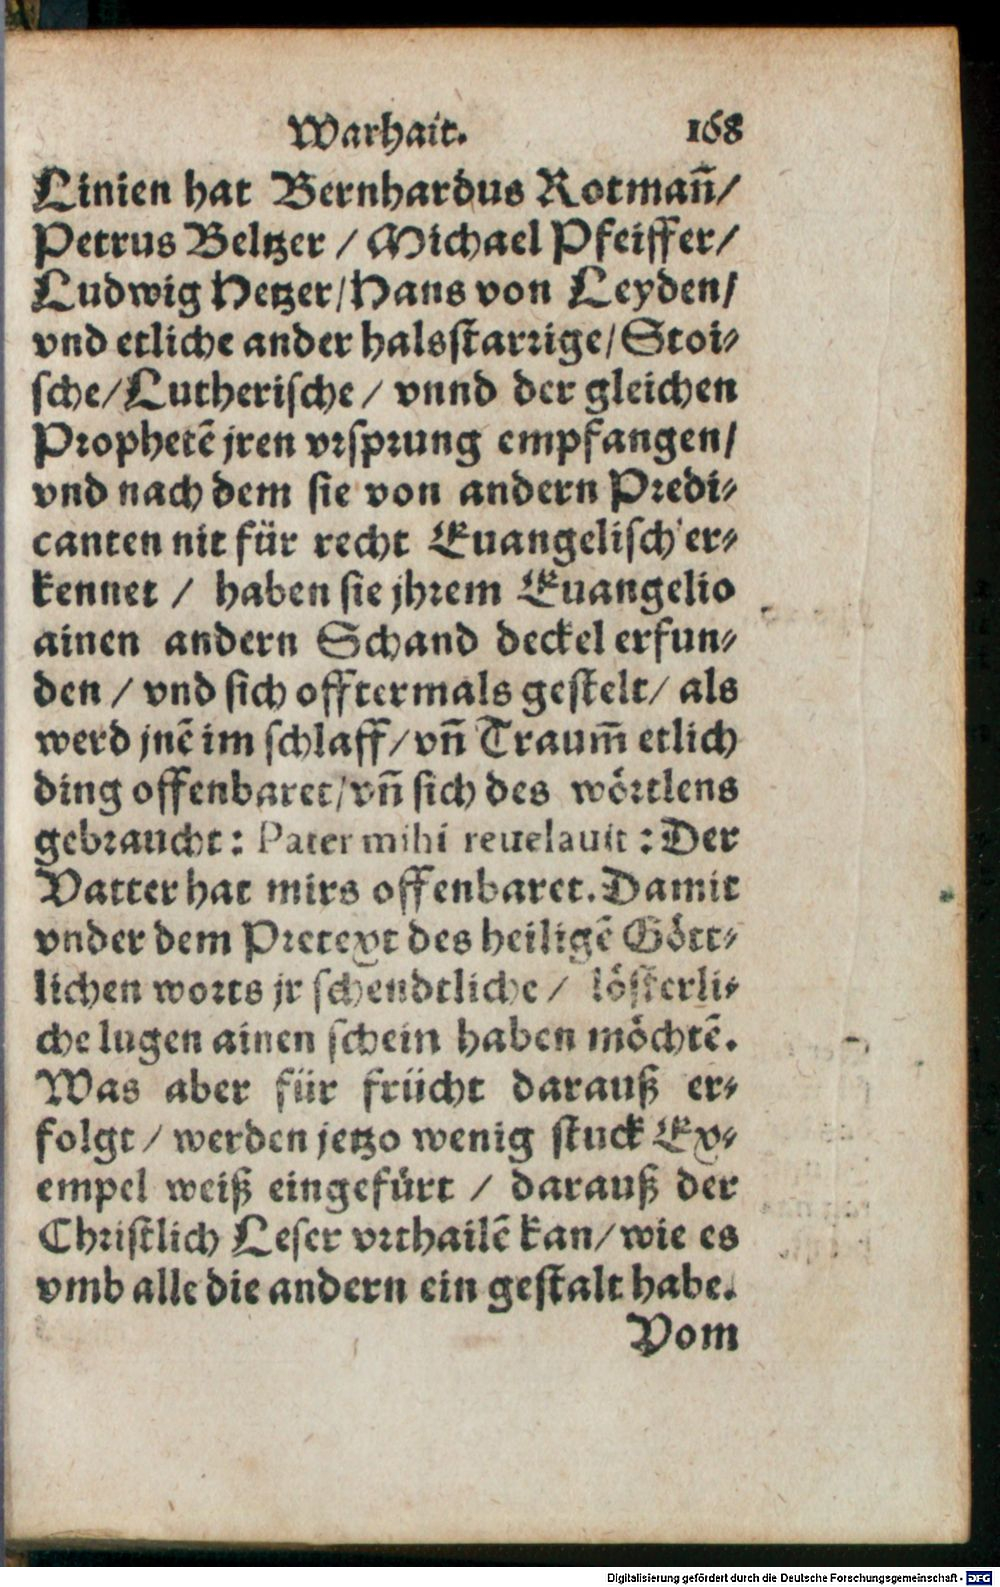 Warhait. 168
Linien hat Bernhardus Rotmañ/
Petrus Beltzer / Michael Pfeiffer/
Ludwig Hetzer/Hans von Leyden/
vnd etliche ander halsstarrige/Stoi-
sche/Lutherische / vnnd der gleichen
Prophetē jren vrsprung empfangen/
vnd nach dem sie von andern Predi-
canten nit für recht Euangelisch er-
kennet / haben sie jhrem Euangelio
ainen andern Schand deckel erfun-
den / vnd sich offtermals gestelt/ als
werd jnē im schlaff/vñ Traum̃ etlich
ding offenbaret/vñ sich des wörtlens
gebraucht: Pater mihi reuelauit : Der
Vatter hat mirs offenbaret. Damit
vnder dem Pretext des heiligē Gött-
lichen worts jr schendtliche / lösterli-
che lugen ainen schein haben möchtē.
Was aber für frücht darauß er-
folgt / werden jetzo wenig stuck Ex-
empel weiß eingefürt / darauß der
Christlich Leser vrthailē kan/wie es
vmb alle die andern ein gestalt habe.
Vom
Digitalisierung gefördert durch die Deutsche Forschungsgemeinschaft - DFG